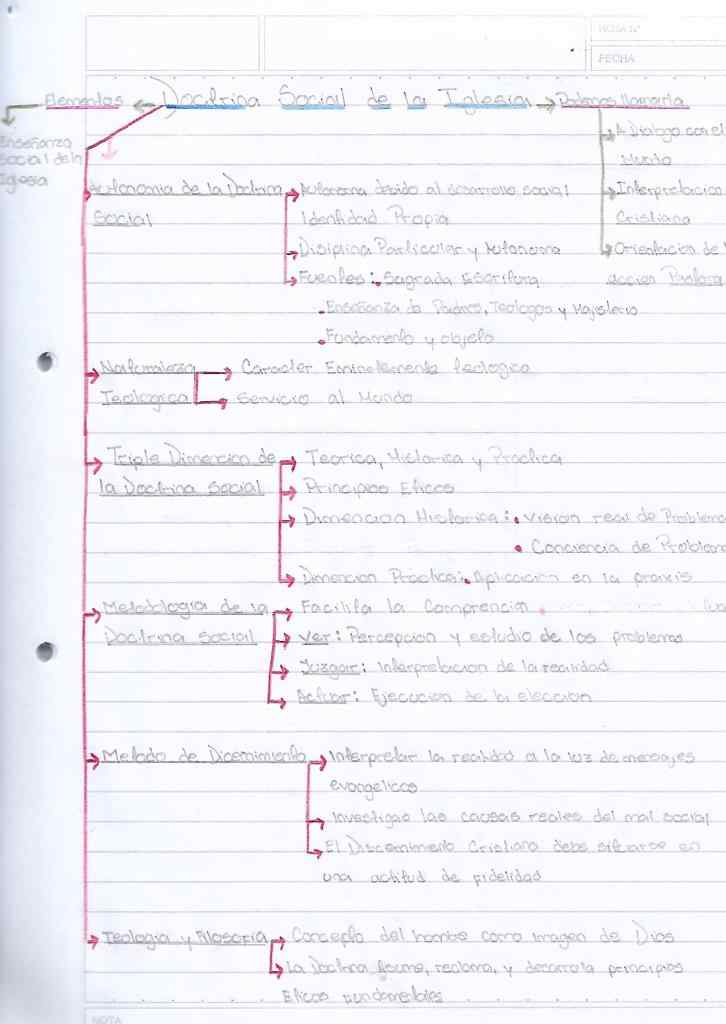 HOJA N°
FECHA
Elementos Doctrina Social de la Iglesia Podemos llamarla
Enseñanza
Social de la
Iglesia
A Dialogo con el
Mundo
Interpretacion
Cristiana
Orientacion de
accion
Autonomia de la Doctrina
Social
Autonoma debido al desarrollo social
Identidad Propia
Disiplina Particular y Autonoma
Fuentes: Sagrada Escritura
Enseñanza de Padres, Teologos y Magisterio
Fundamento y objeto
Naturaleza
Teologica
Caracter Eminentemente teologico
Servicio al Mundo
Triple Dimencion de
la Doctrina Social
Teorica, Historica y Practica
Principios Eticos
Dimencion Historica: Vision real de Problema
Conciencia de Problema
Dimencion Practica: Aplicacion en la praxis
Metodologia de la
Doctrina Social
Facilita la Comprencion
Ver: Percepcion y estudio de los problemas
Juzgar: Interpretacion de la realidad
Actuar: Ejecucion de la eleccion
Metodo de Dicernimiento
Interpretar la realidad a la luz de mensajes
evangelicos
Investigao las causas reales del mal social
El Discernimento Cristiano debe situarse en
una actitud de fidelidad
Teologia y Filosofia
Concepto del hombre como imagen de Dios
La Doctrina Asume, reclama, y desarrolla principios
Eticos fundamentales
NOTA